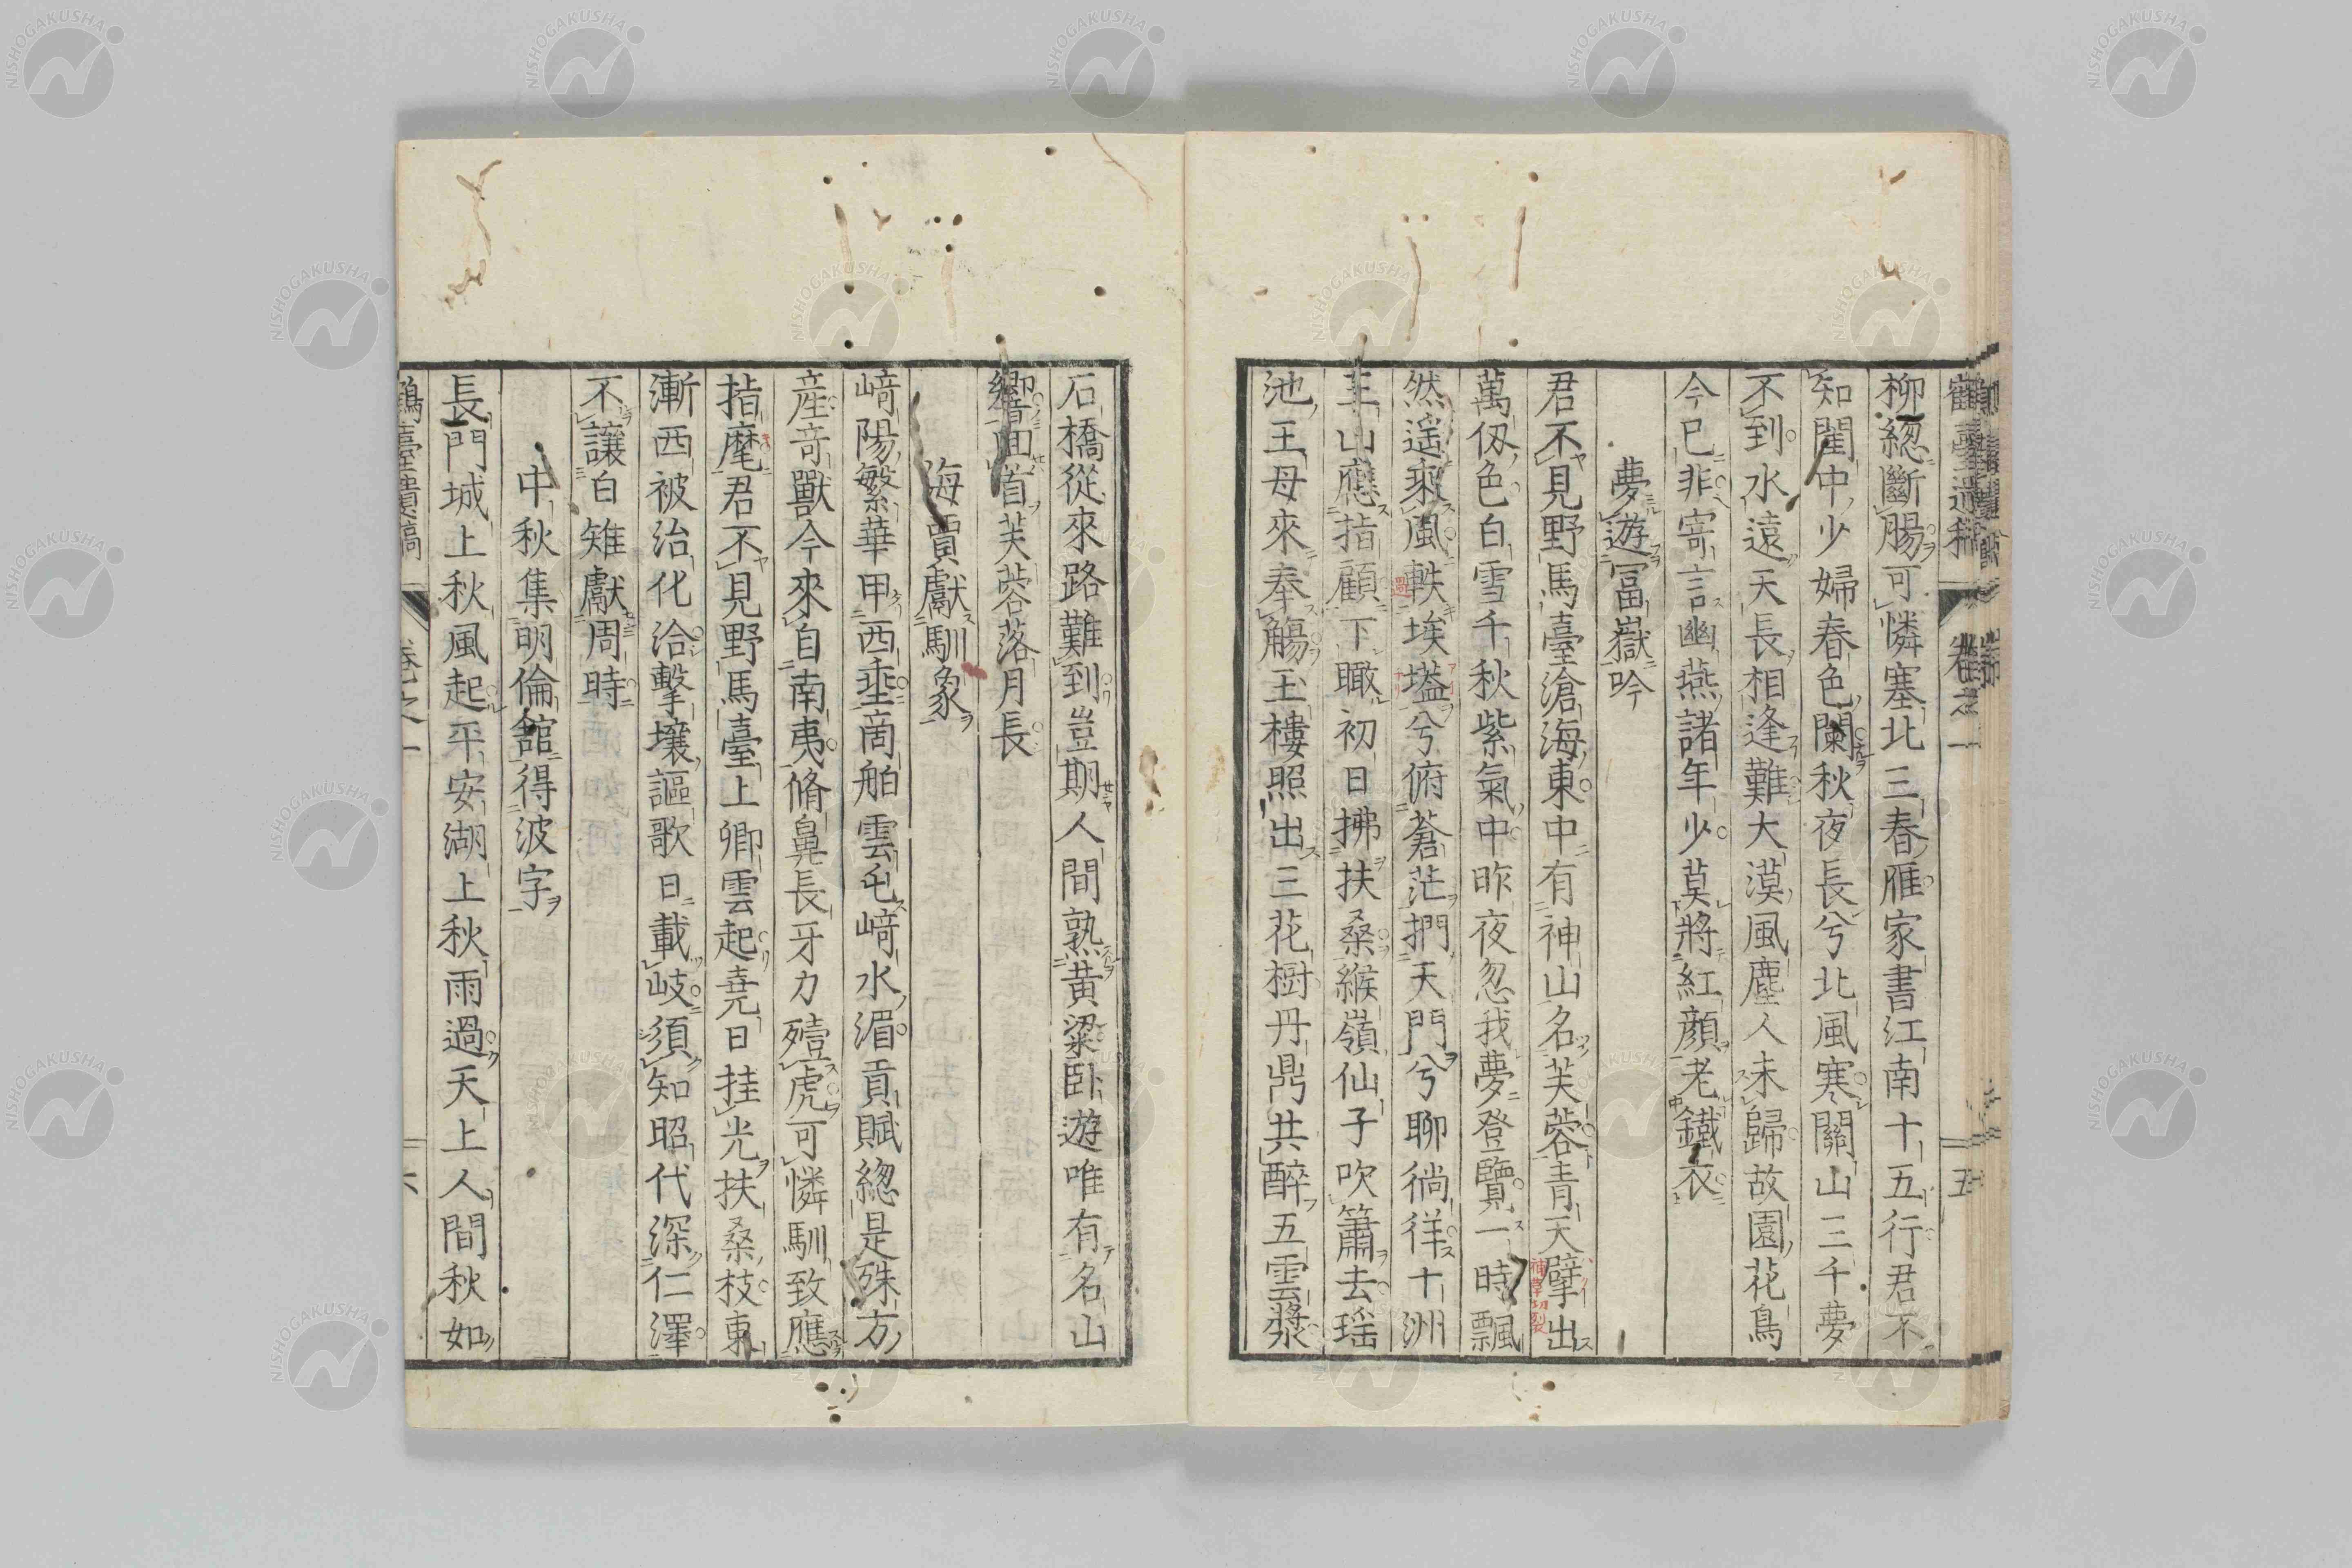 柳緫斷腸可憐塞北三春雁家書江南十五行君不
知閨中少婦春色闌秋夜長兮北風寒關山三千夢
不到水遠天長相逢難大漠風塵人未歸故園花鳥
今已非寄言幽燕諸年少莫將紅顏老鐵衣
夢遊冨嶽吟
君不見野馬臺滄海東中有神山名芙蓉青天擘出
萬仭色白雪千秋紫氣中昨夜忽我夢登覽一時飄
然遥乘風軼埃壒兮俯蒼茫捫天門兮聊徜徉十洲
三山應指顧下瞰初日拂扶桑緱嶺仙子吹簫去瑶
池王母來奉觴玉樓照出三花樹丹鼎共醉五雲漿
石橋從來路難到豈期人間熟黄粱卧遊唯有名山
響回首芙蓉落月長
海賈獻馴象
﨑陽繁華甲西垂商舶雲屯﨑水湄貢賦緫是殊方
産竒獸今來自南夷脩鼻長牙力殪虎可憐馴致應
指麾君不見野馬臺上卿雲起堯日挂光扶桑枝東
漸西被治化洽擊壤謳歌日載岐須知昭代深仁澤
不讓白雉獻周時
中秋集明倫舘得波字
長門城上秋風起平安湖上秋雨過天上人間秋如
鶴臺遺稿 卷之一 六
卷之一 五
NISHOGAKUSHA